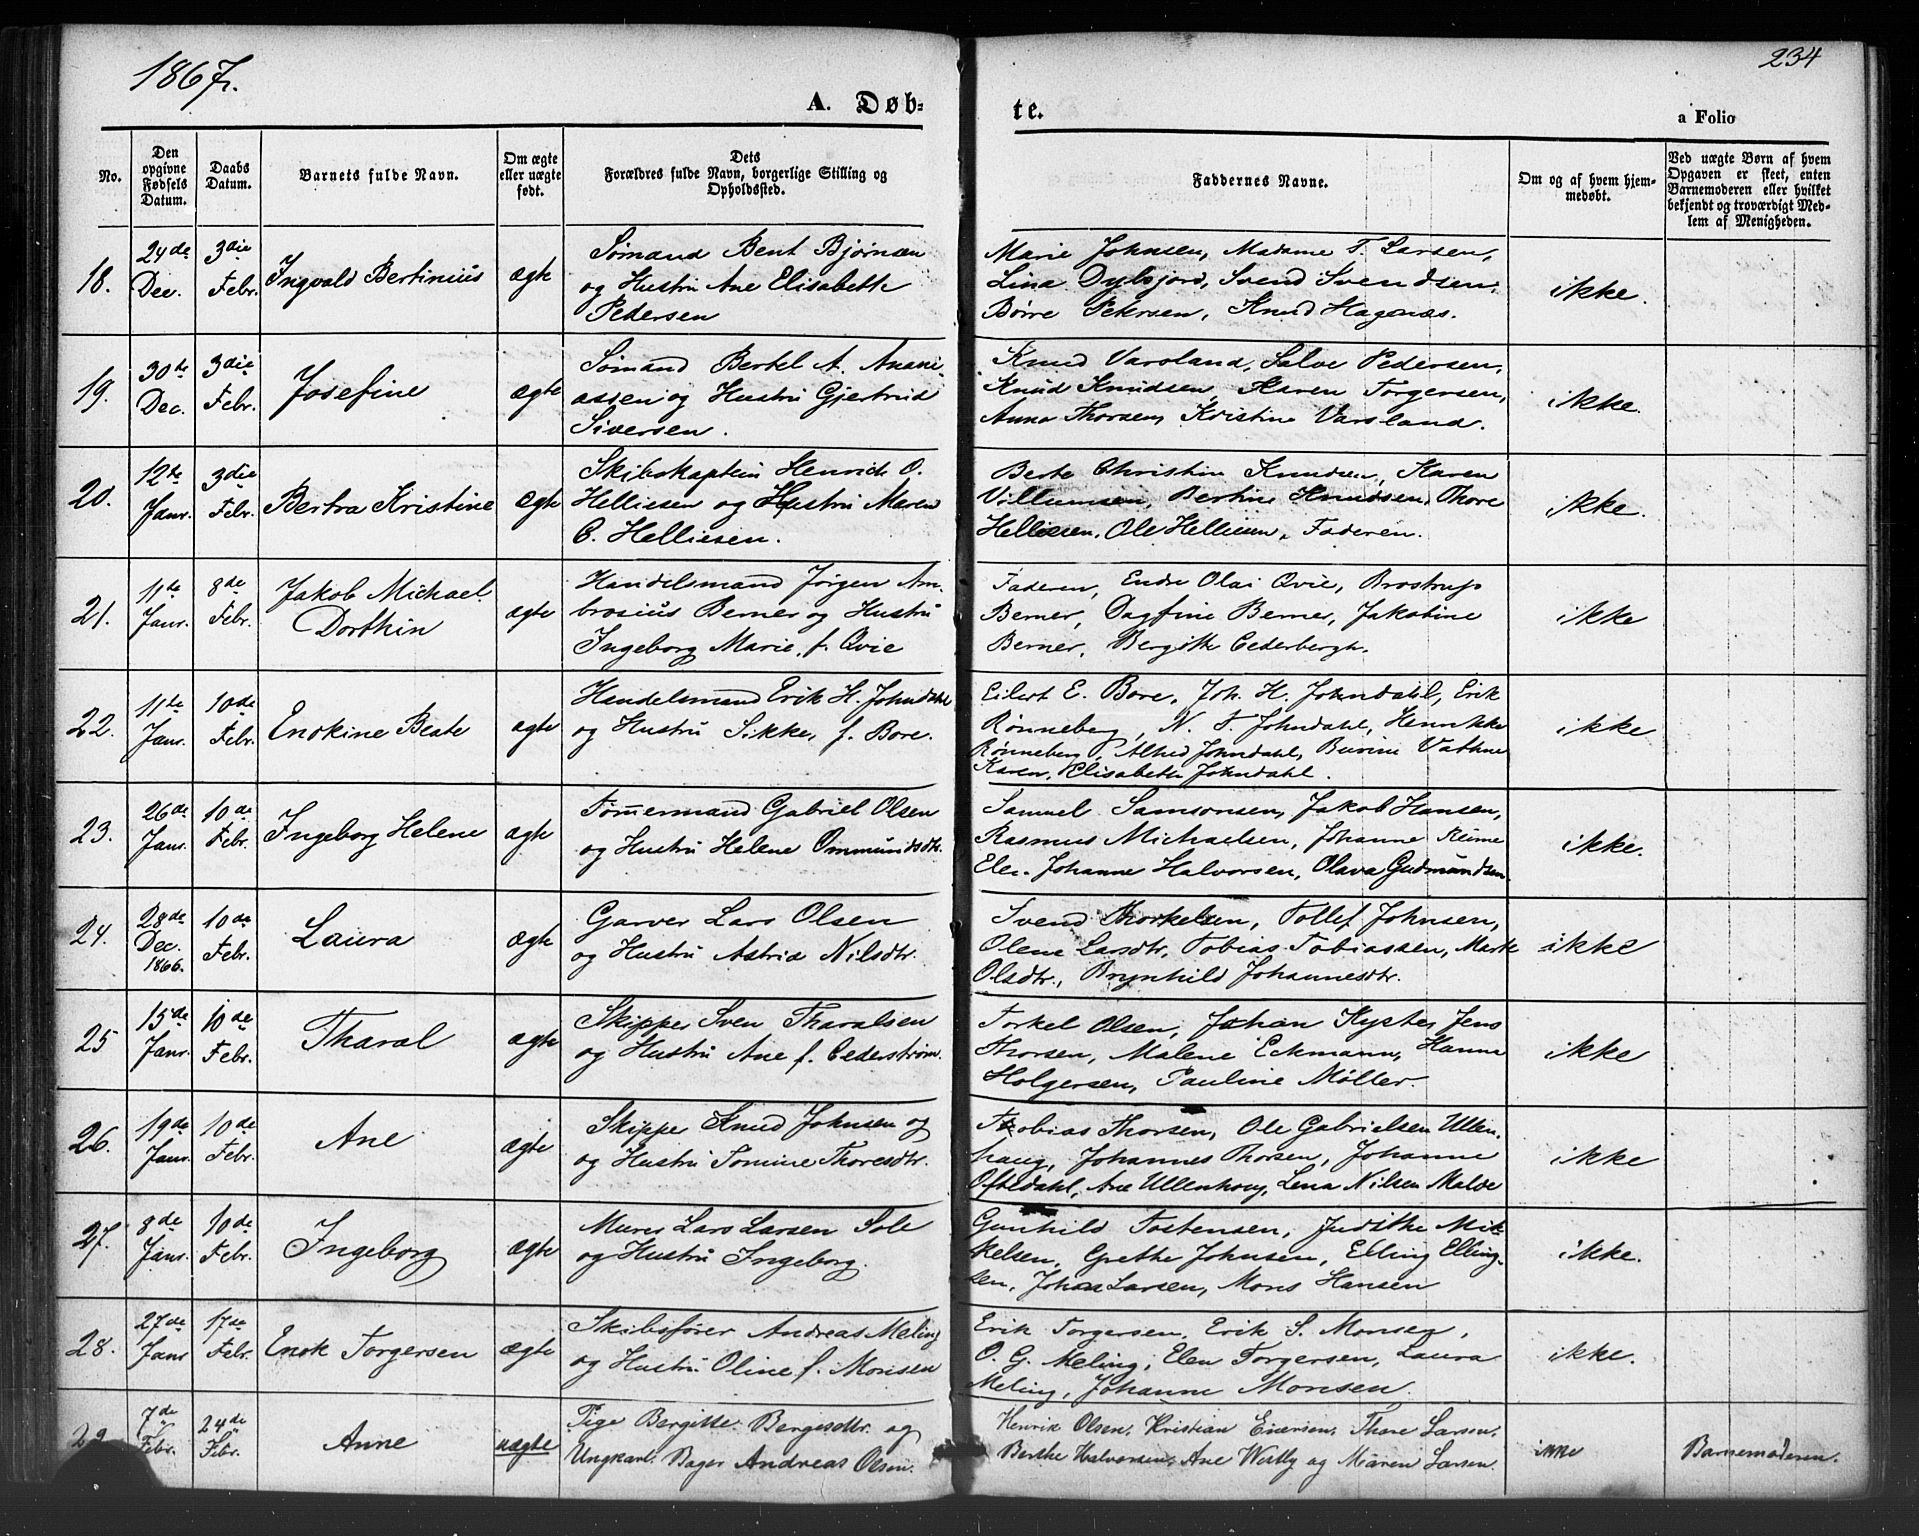 1867.
234
A. Døb=
te.
a Folio
No.
Den opgivne Fødsels Datum.
Daabs Datum.
Barnets fulde Navn.
Om ægte eller uægte født.
Dets Forældres fulde Navn, borgerlige Stilling og Opholdssted.
Faddernes Navne.
Om og af hvem hjemmedøbt.
Ved uægte Børn af hvem Opgaven er skeet, enten Barnemoderen eller hvilket bekjendt og troværdigt Medlem af Menigheden.
18. 24de Dec. 3die Febr. Ingvald Bertinius ægte
Sømand Bent Bjørnsen
og Hustru Ane Elisabeth
Pedersen
Marie Johnsen, Madame T. Larsen,
Lina Svend Svendsen,
Børre Petersen, Knud Hagenæs.
ikke.
19. 30te Dec. 3die Febr. Josefine ægte
Sømand Bertel A. Anani-
assen og Hustru Gjertrud
Siversen.
Knud Varsland, Salve Pedersen,
Knud Knudsen, Karen Torgersen,
Anna Thorsen, Kristine Varsland.
ikke.
20. 12te Janr. 3die Febr. Bertra Kristine ægte
Skibskaptein Henrich O.
Helliesen og Hustru Maren
C. Helliesen.
Berte Christine Knudsen, Karen
Villumsen, Bertine Knudsen, Thore
Helliesen, Ole Helliesen, Faderen.
ikke.
21. 11te Janr. 8de Febr. Jakob Michael Dorthin ægte
Handelsmand Jørgen Am-
brosius Berner og Hustru
Ingeborg Marie, f. Qvie
Faderen, Endre Olai Qvie, Brostrup
Berner, Dagfine Berner, Jakobine
Berner, Bergitte Cederbergh.
ikke
22. 11te Janr. 10de Febr. Enokine Beate ægte
Handelsmand Erik H. Johndahl
og Hustru Sikke, f. Bore.
Eilert E. Bore, Joh. H. Johndahl, Erik
Rønneberg, N. T. Johndahl, Henrikke
Rønneberg, Alhed Johndahl, Burine Vathne
Karen, Elisabeth Johndahl.
ikke
23. 26de Janr. 10de Febr. Ingeborg Helene ægte
Tømmermand Gabriel Olsen
og Hustru Helene Ommundsdtr.
Samuel Samsonsen, Jakob Hansen,
Rasmus Michaelsen, Johanne
Johanne Halvorsen, Olava Gudmundsen.
ikke.
24. 28de Dec. 1866. 10de Febr. Laura ægte
Garver Lars Olsen
og Hustru Astrid Nilsdtr.
Svend Thorkelsen, Tollef Johnsen,
Olene Larsdtr, Tobias Tobiassen, Marte
Olsdtr., Brynhild Johannesdtr.
ikke
25 15de Janr. 10de Febr. Tharal ægte
Skipper Sven Tharalsen
og Hustru Ane f. Cederstrøm.
Torkel Olsen, Johan Kyster, Jens
Thorsen, Malene Eckmann, Hanna
Holgersen, Pauline Møller.
ikke
26. 19de Janr. 10de Febr. Ane ægte
Skipper Knud Johnsen og
og Hustru Tomine Thoresdtr.
Tobias Thorsen, Ole Gabrielsen Ullen-
haug, Johannes Thorsen, Johanne
Oftedahl, Ane Ullenhoug, Lena Nilsen Malde
ikke
27. 8de Janr. 10de Febr. Ingeborg ægte
Murer Lars Larsen Sole
og Hustru Ingeborg.
Gunhild Tostensen, Judithe Mik-
kelsen, Grethe Johnsen, Elling Elling-
sen, Johan Larsen, Mons Hansen
ikke.
28. 27de Janr 17de Febr. Enok Torgersen ægte
Skibsfører Andreas Meling
og Hustru Oline f. Monsen
Erik Torgersen, Erik S. Monsen,
O. G. Meling, Elen Torgersen, Laura
Meling, Johanne Monsen.
ikke.
29 7de Febr. 24de Febr. Anne uægte
Pige Bergitte Bergesdtr. og
Ungkarl Bager Andreas Olsen.
Henrik Olsen, Kristian Einersen, Thore Larsen,
Berthe Halvorsen, Ane Westby og Maren Larsen.
ikke
Barnemoderen.